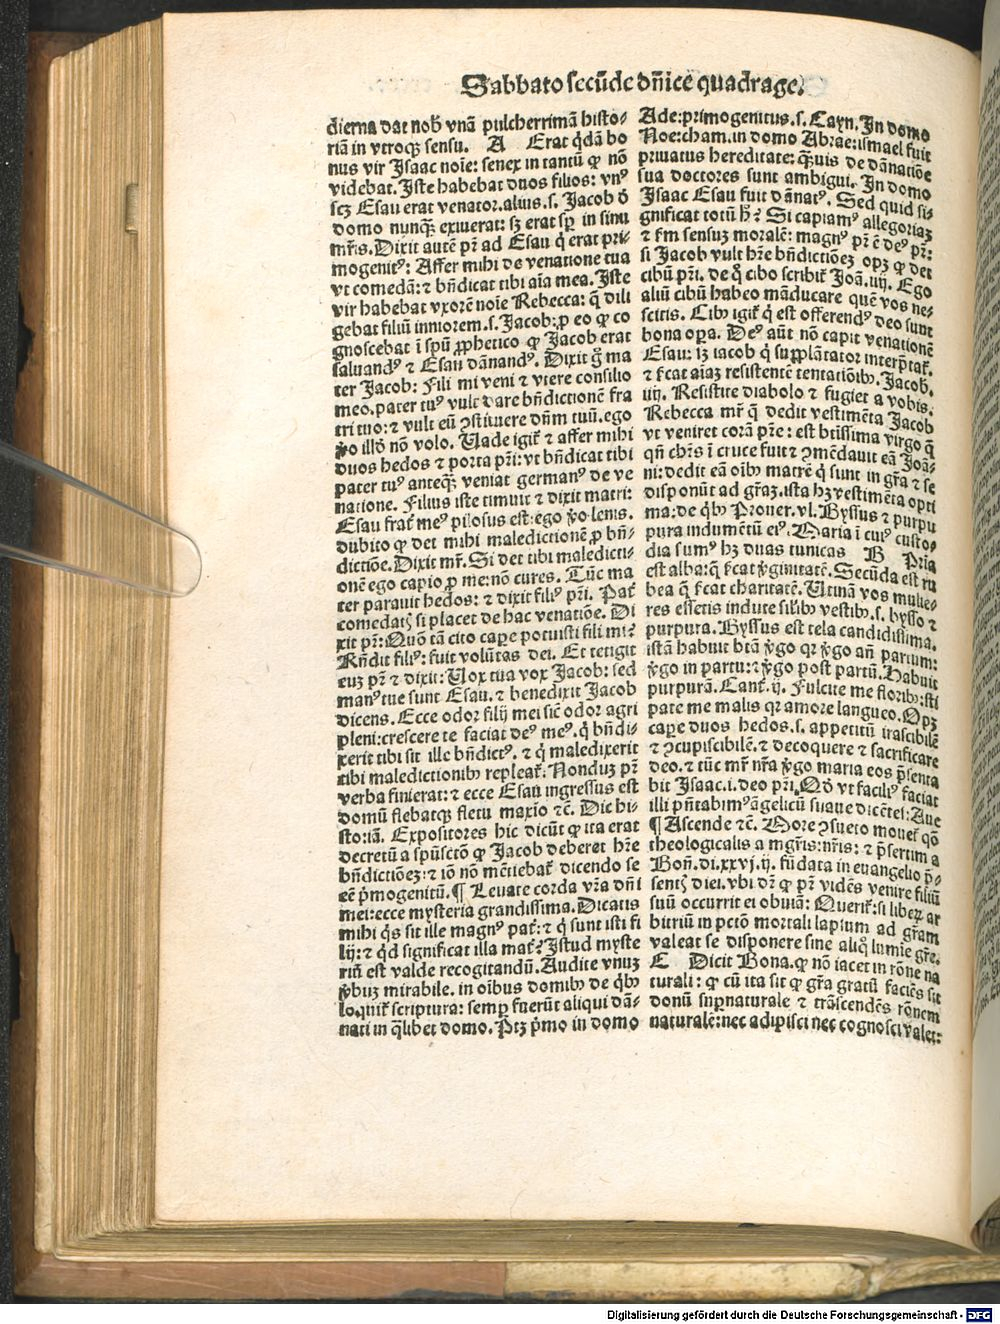 Sabbato secũde dñice quadrage.
dierna dat nob̃ vnã pulcherrimã histo-
riã in vtroqꝫ sensu. A Erat q̃dã bo
nus vir Isaac noĩe: senex in tantũ ꝙ nõ
videbat. Iste habebat duos filios: vnꝰ
scꝫ Esau erat venator. alius .s. Jacob ð
domo nunqꝫ exiuerat: sꝫ erat sꝑ in sinu
mr̃is. Dixit autẽ pr̃ ad Esau q̇ erat pri-
mogenitꝰ: Affer mihi de venatione tua
vt comedã: ⁊ bñdicat tibi aĩa mea. Iste
vir habebat vxorẽ noĩe Rebecca: q̃ dili
gebat filiũ iuniorem .s. Jacob: ꝓ eo ꝙ co
gnoscebat ĩ spũ ꝓphetico ꝙ Jacob erat
saluandꝰ ⁊ Esau dãnandꝰ. Dixit g̃ ma
ter Jacob: Fili mi veni ⁊ vtere consilio
meo. pater tuꝰ vult dare bñdictionẽ fra
tri tuo: ⁊ vult eũ ꝯstituere dñm tuũ. ego
ṽo illð nõ volo. Uade igit̃ ⁊ affer mihi
duos hedos ⁊ porta pr̃i: vt bñdicat tibi
pater tuꝰ anteqꝫ veniat germanꝰ de ve
natione. Filius iste timuit ⁊ dixit matri:
Esau frat̃ meꝰ pilosus est: ego ṽo lenis.
dubito ꝙ det mihi maledictionẽ ꝓ bñ-
dictiõe. Dixit mr̃. Si det tibi maledicti-
onẽ ego capio ꝓ me: nõ cures. Tũc ma
ter parauit hedos: ⁊ dixit filiꝰ pr̃i. Pat̃
comedatꝭ si placet de hac venatiõe. Di
xit pr̃: Quõ tã cito caꝑe potuisti fili mi?
Rñdit filiꝰ: fuit volũtas dei. Et tetigit
euꝫ pr̃ ⁊ dixit: Uox tua vox Jacob: sed
manꝰ tue sunt Esau. ⁊ benedixit Jacob
dicens. Ecce odor filij mei sic̃ odor agri
pleni: crescere te faciat deꝰ meꝰ. q̇ bñdi-
xerit tibi sit ille bñdictꝰ. ⁊ q̇ maledixerit
tibi maledictionibꝰ repleat̃. Nonduꝫ pr̃
verba finierat: ⁊ ecce Esau ingressus est
domũ flebatqꝫ fletu maxĩo ⁊c̃. Dic hi-
storiã. Expositores hic dicũt ꝙ ita erat
decretũ a spũsctõ ꝙ Jacob deberet hr̃e
bñdictiõeꝫ: ⁊ iõ nõ mẽtiebat̃ dicendo se
eẽ p̃mogenitũ. ¶ Leuate corda vr̃a dñi
mei: ecce mysteria grandissima. Dicatis
mihi q̇s sit ille magnꝰ pat̃: ⁊ q̇ sunt isti fi
lij: ⁊ q̇d significat illa mat̃? Istud myste
riũ est valde recogitandũ. Audite vnuꝫ
ṽbuꝫ mirabile. in oĩbus domibꝰ de q̇bꝰ
loquit̃ scriptura: semꝑ fuerũt aliqui dã-
nati in q̃libet domo. Ptꝫ p̃mo in domo
Ade: primogenitus .s. Cayn. In domo
Noe: cham. in domo Abrae: ismael fuit
priuatus hereditate: q̃uis de dãnatiõe
sua doctores sunt ambigui. In domo
Isaac Esau fuit dãnatꝰ. Sed quid si-
gnificat totũ h̃? Si capiamꝰ allegoriaꝫ
⁊ s̃m sensuꝫ moralẽ: magnꝰ pr̃ ẽ deꝰ pr̃:
si Jacob vult hr̃e bñdictiõeꝫ opꝫ ꝙ det
cibũ pr̃i. de q̊ cibo scribit̃ Joã. iiij. Ego
aliũ cibũ habeo mãducare quẽ vos ne-
scitis. Cibꝰ igit̃ q̇ est offerendꝰ deo sunt
bona oꝑa. Deꝰ aũt nõ capit venationẽ
Esau: sꝫ iacob q̇ supplãtator interp̃tat̃.
⁊ s̃cat aĩaꝫ resistentẽ tentatiõibꝰ. Jacob.
iiij. Resistite diabolo ⁊ fugiet a vobis.
Rebecca mr̃ q̃ dedit vestimẽta Jacob
vt veniret corã pr̃e: est btĩssima virgo q̃
qñ chr̃s ĩ cruce fuit ⁊ ꝯmẽdauit eã Joã-
ni: dedit eã oĩbꝰ matrẽ q̇ sunt in gr̃a ⁊ se
disponũt ad gr̃aꝫ. ista hꝫ vestimẽta opti
ma: de q̇bꝰ Prouer. vl. Byssus ⁊ purpu
pura indumẽtũ eiꝰ. Maria ĩ cuiꝰ custo-
dia sumꝰ hꝫ duas tunicas B Pr̃ia
est alba: q̃ s̃cat ṽginitatẽ. Secũda est ru
bea q̃ s̃cat charitatẽ. Utinã vos mulie-
res essetis indute silĩbꝰ vestibꝰ .s. bysso ⁊
purpura. Byssus est tela candidissima.
istã habuit btã ṽgo qꝛ ṽgo añ partum:
ṽgo in partu: ⁊ ṽgo post partũ. Habuit
purpurã. Cant̃. ij. Fulcite me floribꝰ: sti
pate me malis qꝛ amore langueo. Opꝫ
caꝑe duos hedos .s. appetitũ irascibilẽ
⁊ ꝯcupiscibilẽ. ⁊ decoquere ⁊ sacrificare
deo. ⁊ tũc mr̃ nr̃a ṽgo maria eos p̃senta
bit Isaac .i. deo pr̃i. Qð vt faciliꝰ faciat
illi pñtabimꝰ ãgelicũ suaue dicẽtes: Aue
¶ Ascende ⁊c̃. More ꝯsueto mouet̃ qõ
theologicalis a mgr̃is: nr̃is: ⁊ p̃sertim a
Boñ. di. xxvj. ij. fũdata in euangelio p̃-
sentꝭ diei. vbi dr̃ ꝙ pr̃ vidẽs venire filiũ
suũ occurrit ei obuiã: Querit̃: si liberꝫ ar
bitriũ in pctõ mortali lapsum ad gr̃am
valeat se disponere sine aliq̊ lumĩe gr̃e.
C Dicit Bona. ꝙ nõ iacet in rõne na
turali: ꝙ cũ ita sit ꝙ gr̃a gratũ faciẽs sit
donũ suꝑnaturale ⁊ trãscendẽs rõnem
naturalẽ: nec adipisci nec cognosci valet:
Digitalisierung gefördert durch die Deutsche Forschungsgemeinschaft - DFG